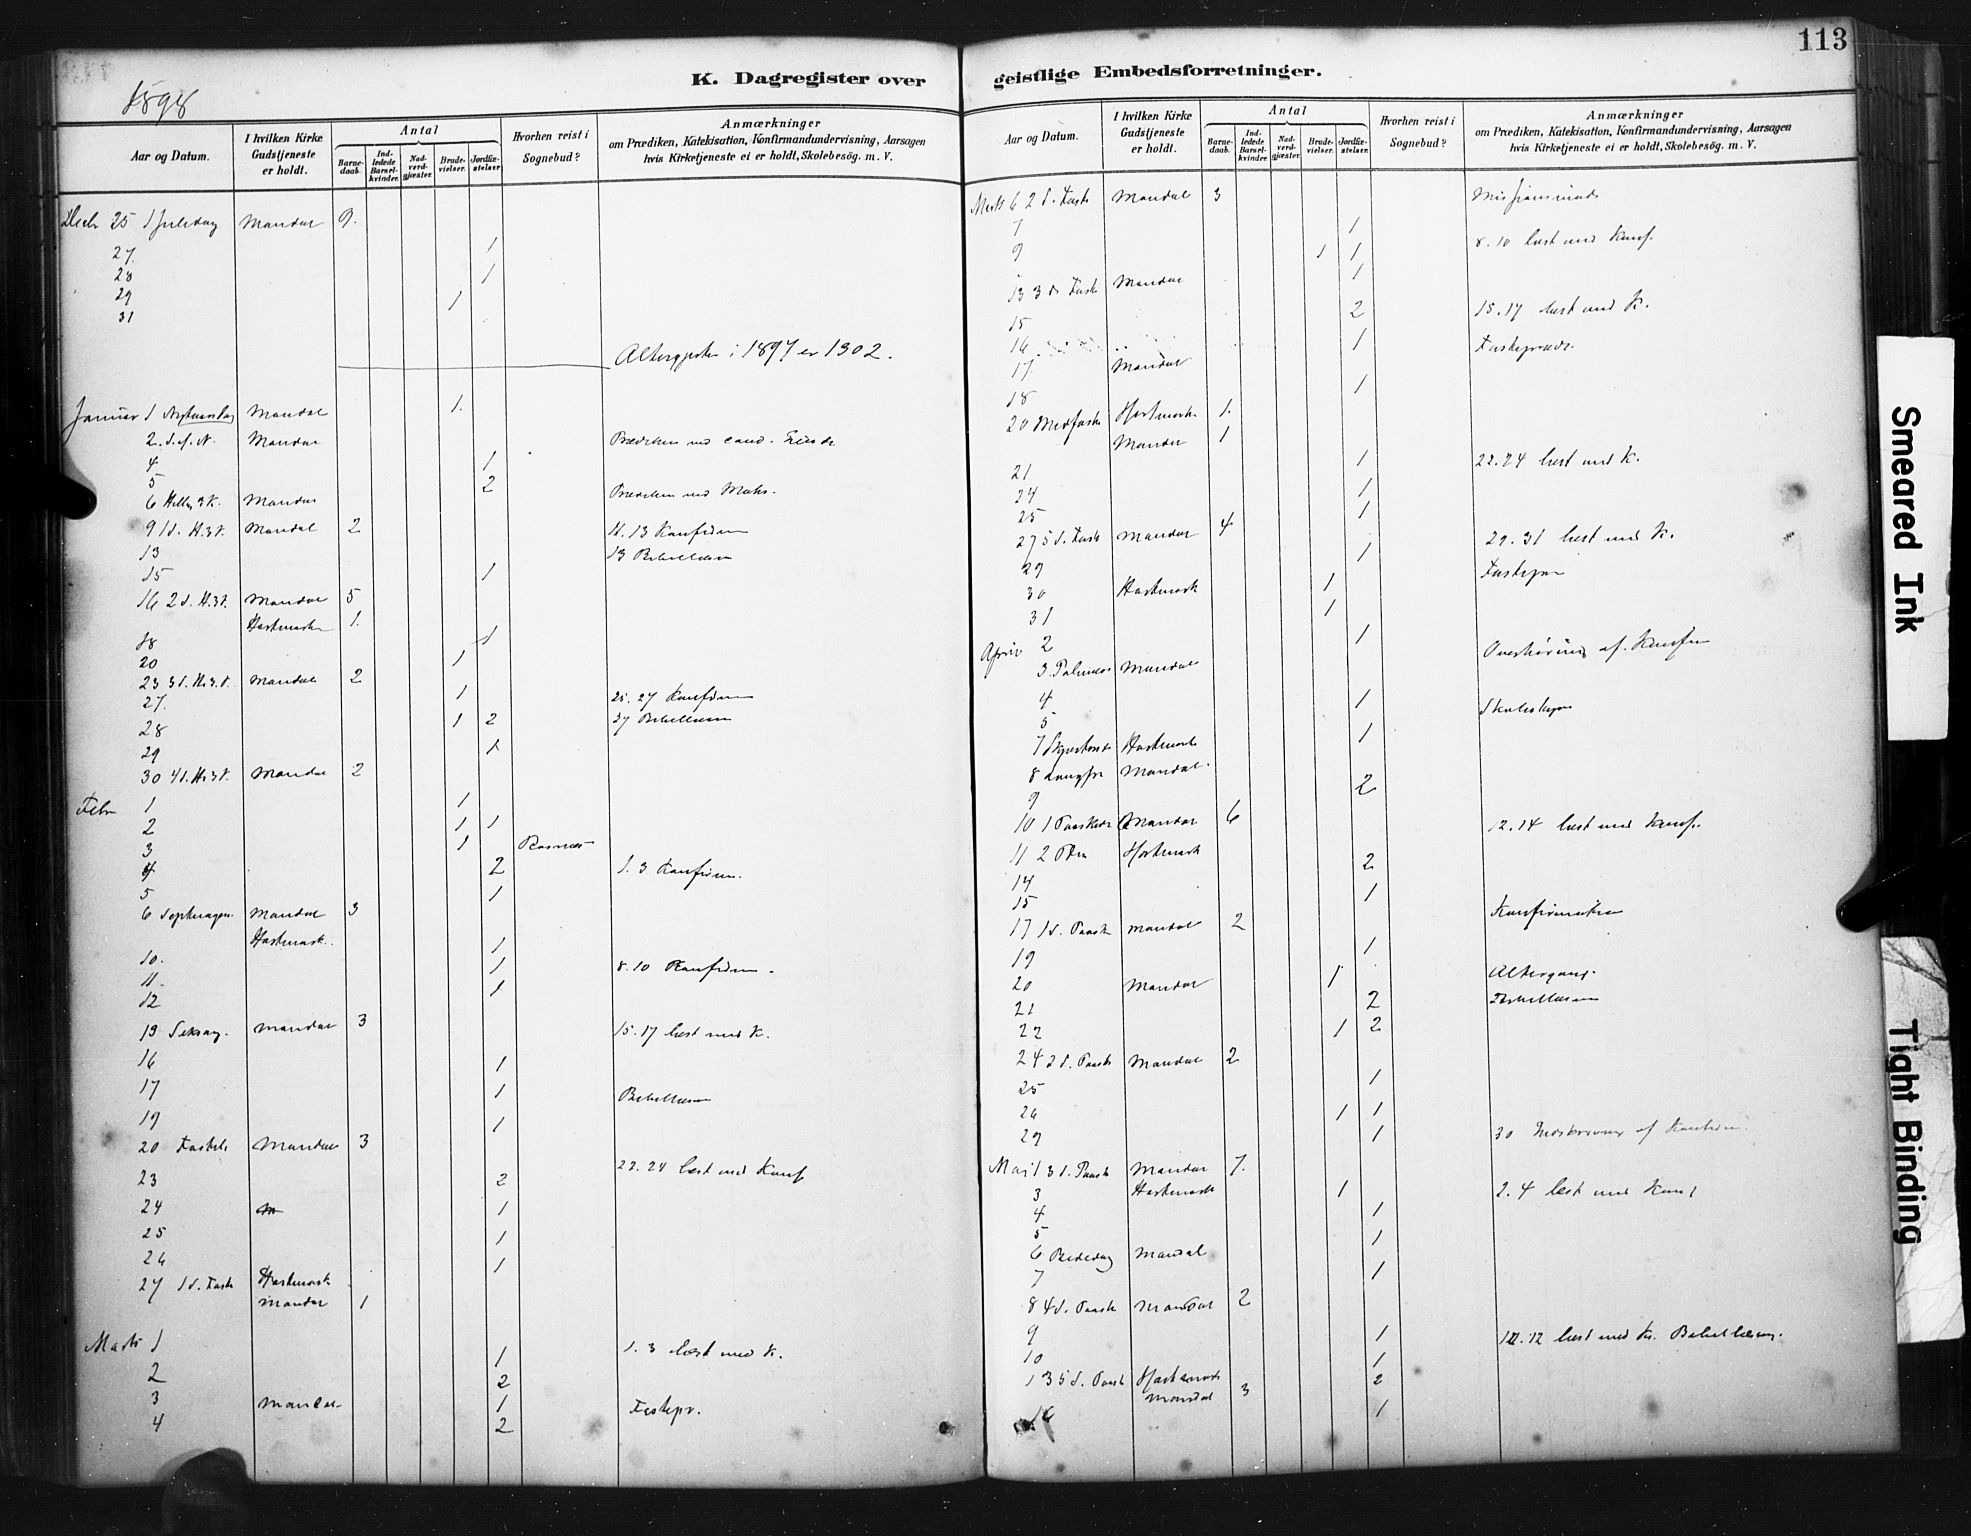 113
K. Dagregister over geistlige Embedsforretninger.
1898
Aar og Datum. I hvilken Kirke Gudstjeneste er holdt. Antal Barnedaab. Indledede Barselkvinder. Nadverdgjæster. Brudevielser. Jordfæstelser. Hvorhen reist i Sognebud? Anmærkninger om Prædiken, Katekisation, Konfirmandundervisning, Aarsagen hvis Kirketjeneste ei er holdt, Skolebesøg. m. V.
Decbr 25 1 Juledag Mandal 9.
27. 1
28 1
29 1
31
Altergjester i 1897 er 1302.
Januar 1 Nytaarsdag Mandal 1.
2. S. e. N. Mandal Prædiken ved cand.
4 1
5 2
6 Hellig 3 K. Mandal Prædiken ved
9 1 S. H.3.K. Mandal 2 11. 13 Konfirm
13 13 Bibellæsn
15 1
16 2 S. H.3.K. Mandal 5
Hartmark 1.
18 1
20 1
23 3 S. H.3.K. Mandal 2
27. 1 25. 27 Konfirm
28 1 2 27 Bibellæsn
29 1
30 4 S. H.3.K. Mandal 2
Febr 1 1
2 1 1
3 1 Risnæs
4 2 1. 3 Konfirm.
5 1
6 Septuages. Mandal 3
Hartmark.
10. 1
11. 1 8. 10 Konfirm.
12 1
13 Seksag. Mandal 3 15. 17 læst med K.
16 1
17 1 Bibellæsn
19 1
20 Fastel. Mandal 3
23 2 22. 24 læst med Konf
24 1
25 1
26 1
27 1 S. Faste Hartmark
Mandal 1
Marts 1 1 1. 3 læst med K.
2 2
3 Mandal 1 Fastepr.
4 2
Aar og Datum. I hvilken Kirke Gudstjeneste er holdt. Antal Barnedaab. Indledede Barselkvinder. Nadverdgjæster. Brudevielser. Jordfæstelser. Hvorhen reist i Sognebud? Anmærkninger om Prædiken, Katekisation, Konfirmandundervisning, Aarsagen hvis Kirketjeneste ei er holdt, Skolebesøg. m. V.
Marts 6 2 S. Faste Mandal 3
7 1
9 1 1 8. 10 læst med Konf.
13 3 S. Faste Mandal 1
15 2 15. 17 læst med K.
16 1 Fastepræd.
17. Mandal
18 1
20 Midfaste Hartmark 1.
Mandal 1
21 1 22. 24 læst med K.
24 1
25 1
27 5 S. Faste Mandal 4
29 1 29. 31 læst med K.
30 Hartmark 1 Fastepr
31 1
April 2 1 Overhøring af Konfirm
3 Palmes Mandal
4 1
5 1
7 Skjærtorsd Hartmark
8 Langfr Mandal
9 2
10 1 Paaskedag Mandal 6 12. 14 læst med Konf.
11 2 Hartmark
14 2
15 1
17 1 S. Paaske Mandal 2 Konfirmation
19 1
20 Mandal 1 Altergang.
21 2 Bibellæsn
22 1 2
24 2 S. Paaske Mandal 2
25 1
26 1 1
29 1 30 af Konfirm.
Mai 1 3 S. Paask Mandal 7.
3 Hartmark 1 2. 4 læst med Konf
4 1
5 1
6 Bededag Mandal
7 1
8 4 S. Paask Mandal 2
9 1
10 1 10. 12 læst med K. Bibellæsn.
13 5 S. Paask Hartmark 2
Mandal 3
16 1
Smeared Ink
Tight Binding